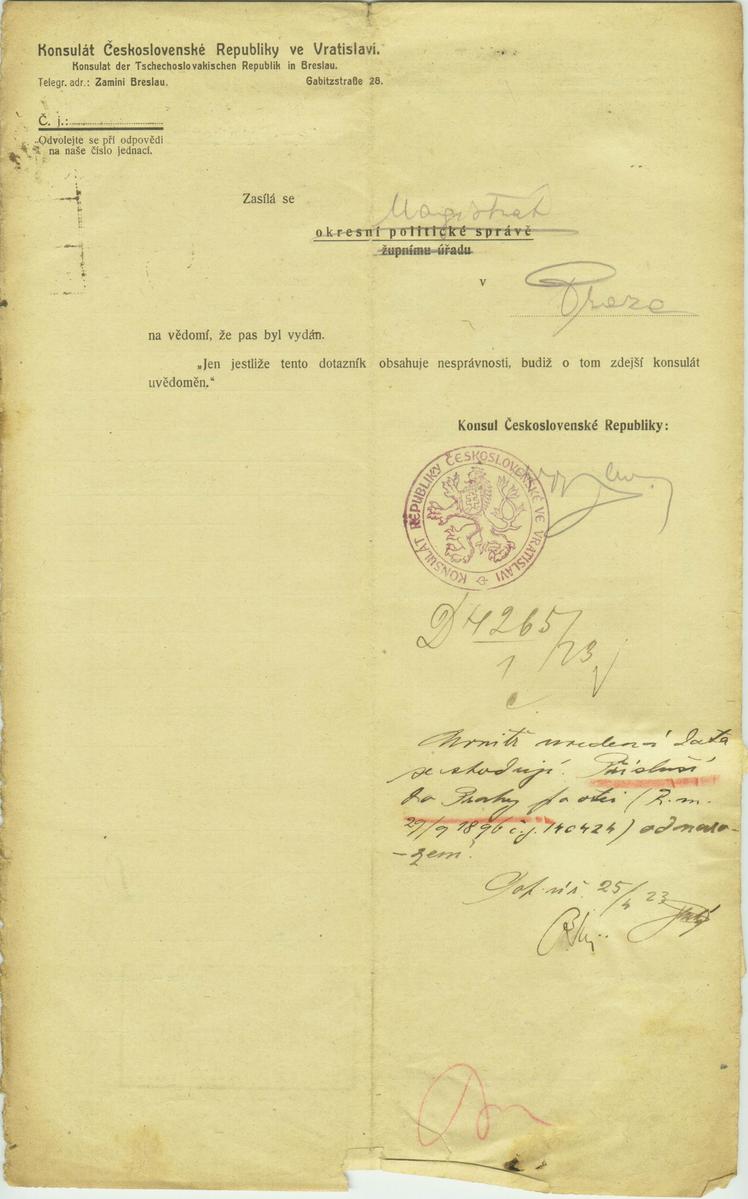 Konsulát Československé Republiky ve Vratislavi.
Konsulat der Tschechoslovakischen Republik in Breslau.
Telegr. adr.: Zamini Breslau. Gabitzstraße 28.
Č. j.:
Odvolejte se při odpovědi
na naše číslo jednací.
Zasílá se Magistrát
okresní politické správě
župnímu úřadu
v Praze
na vědomí, že pas byl vydán.
„Jen jestliže tento dotazník obsahuje nesprávnosti, budiž o tom zdejší konsulát
uvědoměn.“
Konsul Československé Republiky:
KONSULÁT REPUBLIKY ČESKOSLOVENSKÉ VE VRATISLAVI
D 4265/23
1
uvnitř uvedená data
se shodují. Přísluší
do Prahy po otci (
29/9 1896 č.j. 140424) od naro-
-zení.
25/4 23